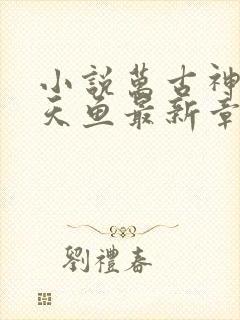 小說萬古神
天魚最新章
劉禮春